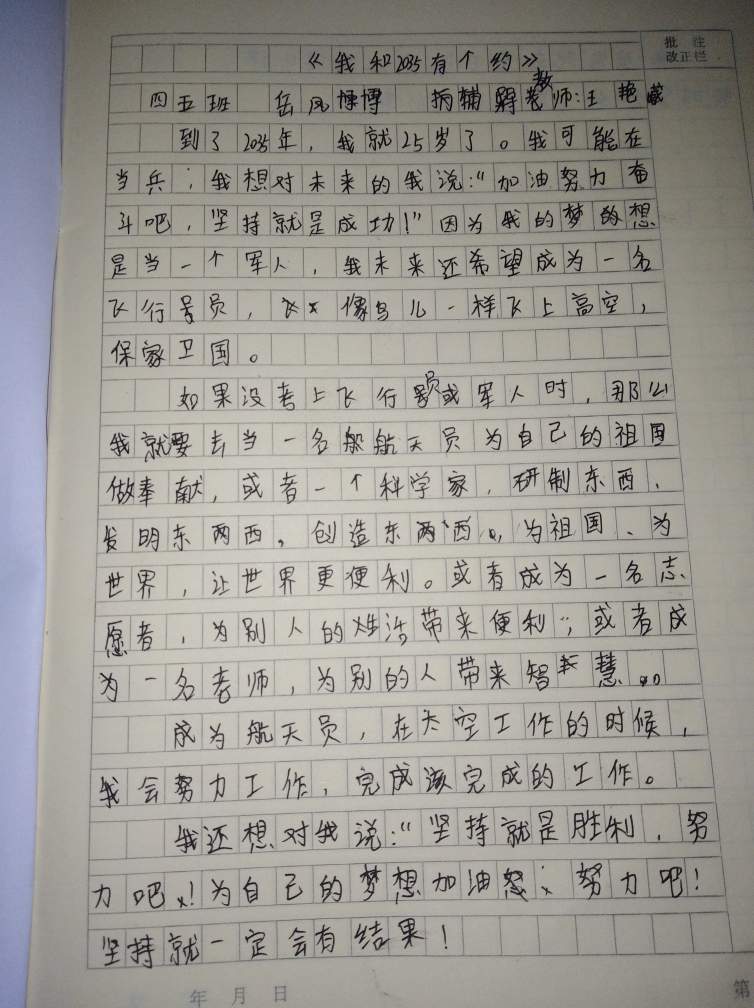 批 注
改正栏
《我和2035有个约》
四五班 岳风博博 辅教老师:王艳
到了2035年，我就25岁了。我可能在
当兵；我想对未来的我说：“加油努力奋
斗吧，坚持就是成功！”因为我的梦的想
是当一个军人，我未来还希望成为一名
飞行员，像鸟儿一样飞上高空，
保家卫国。
如果没考上飞行员或军人时，那么
我就要去当一名船航天员为自己的祖国
做奉献，或者一个科学家，研制东西、
发明东两西。创造东两西。为祖国、为
世界，让世界更便利。或者成为一名志
愿者，为别人的姓活带来便利；或者成
为一名老师，为别的人带来智慧。
成为航天员，在太空工作的时候，
我会努力工作，完成该完成的工作。
我还想对我说：“坚持就是胜利，努
力吧！为自己的梦想加油怒；努力吧！
坚持就一定会有结果！
年 月 日
第